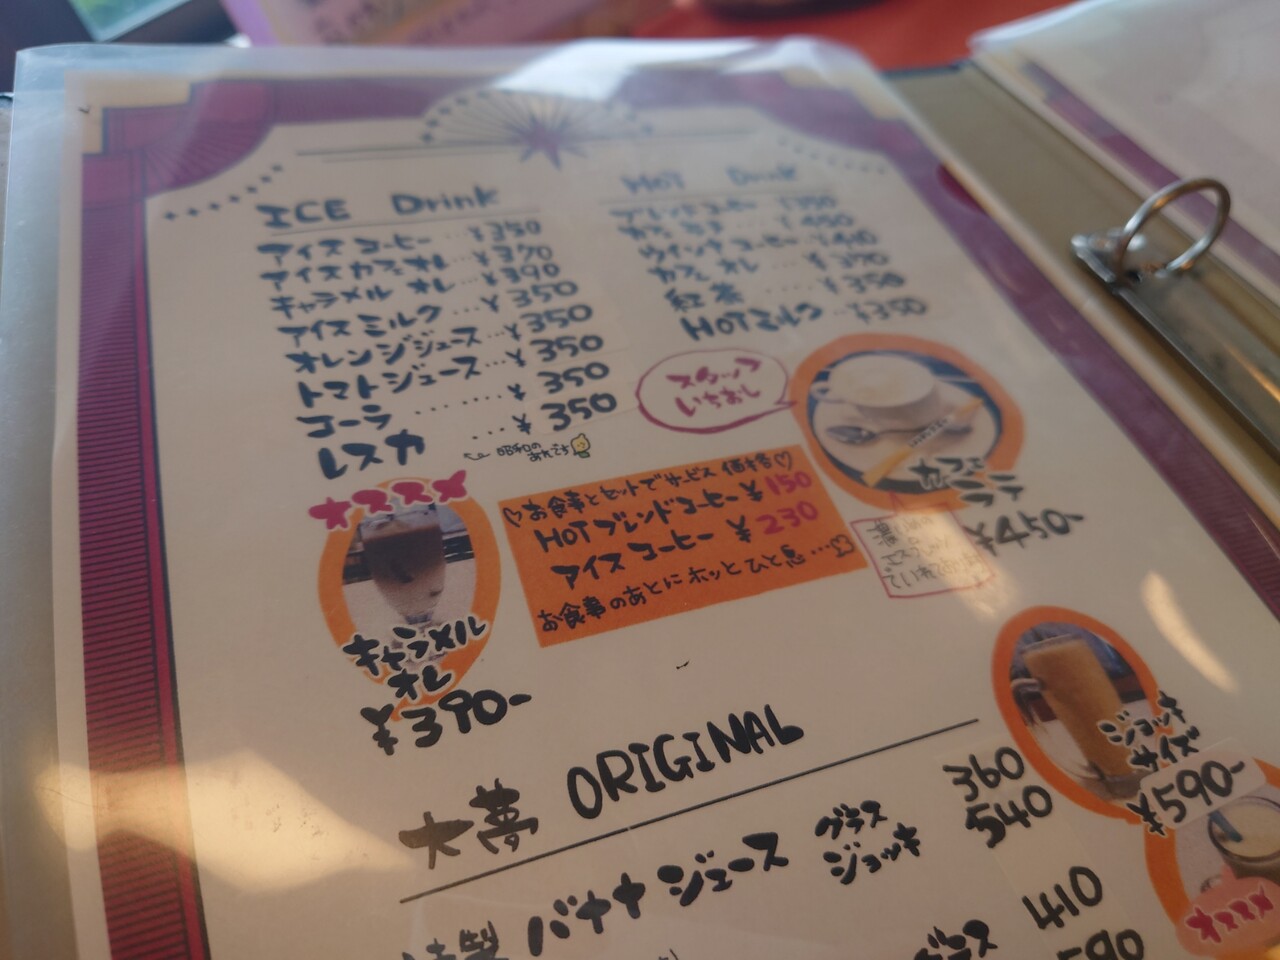 ICE Drink
アイスコーヒー…¥350
アイスカフェオレ…¥370
キャラメルオレ…¥390
アイスミルク…¥350
オレンジジュース…¥350
トマトジュース…¥350
コーラ……¥350
レスカ…¥350
昭和の
あれです
HOT Drink
ブレンドコーヒー ¥350
カフェ ¥450
ウインナコーヒー
カフェオレ…¥370
紅茶…¥350
HOTミルク…¥350
スタッフ
いちおし
カフェ
ラテ
¥450-
お食事とセットでサービス価格♡
HOTブレンドコーヒー ¥150
アイスコーヒー ¥230
お食事のあとにホッとひと息…
オススメ
キャラメル
オレ
¥390-
大夢 ORIGINAL
バナナジュース グラス 360
ジョッキ 540
グラス 410
590
ジョッキ
サイズ
¥590-
オススメ